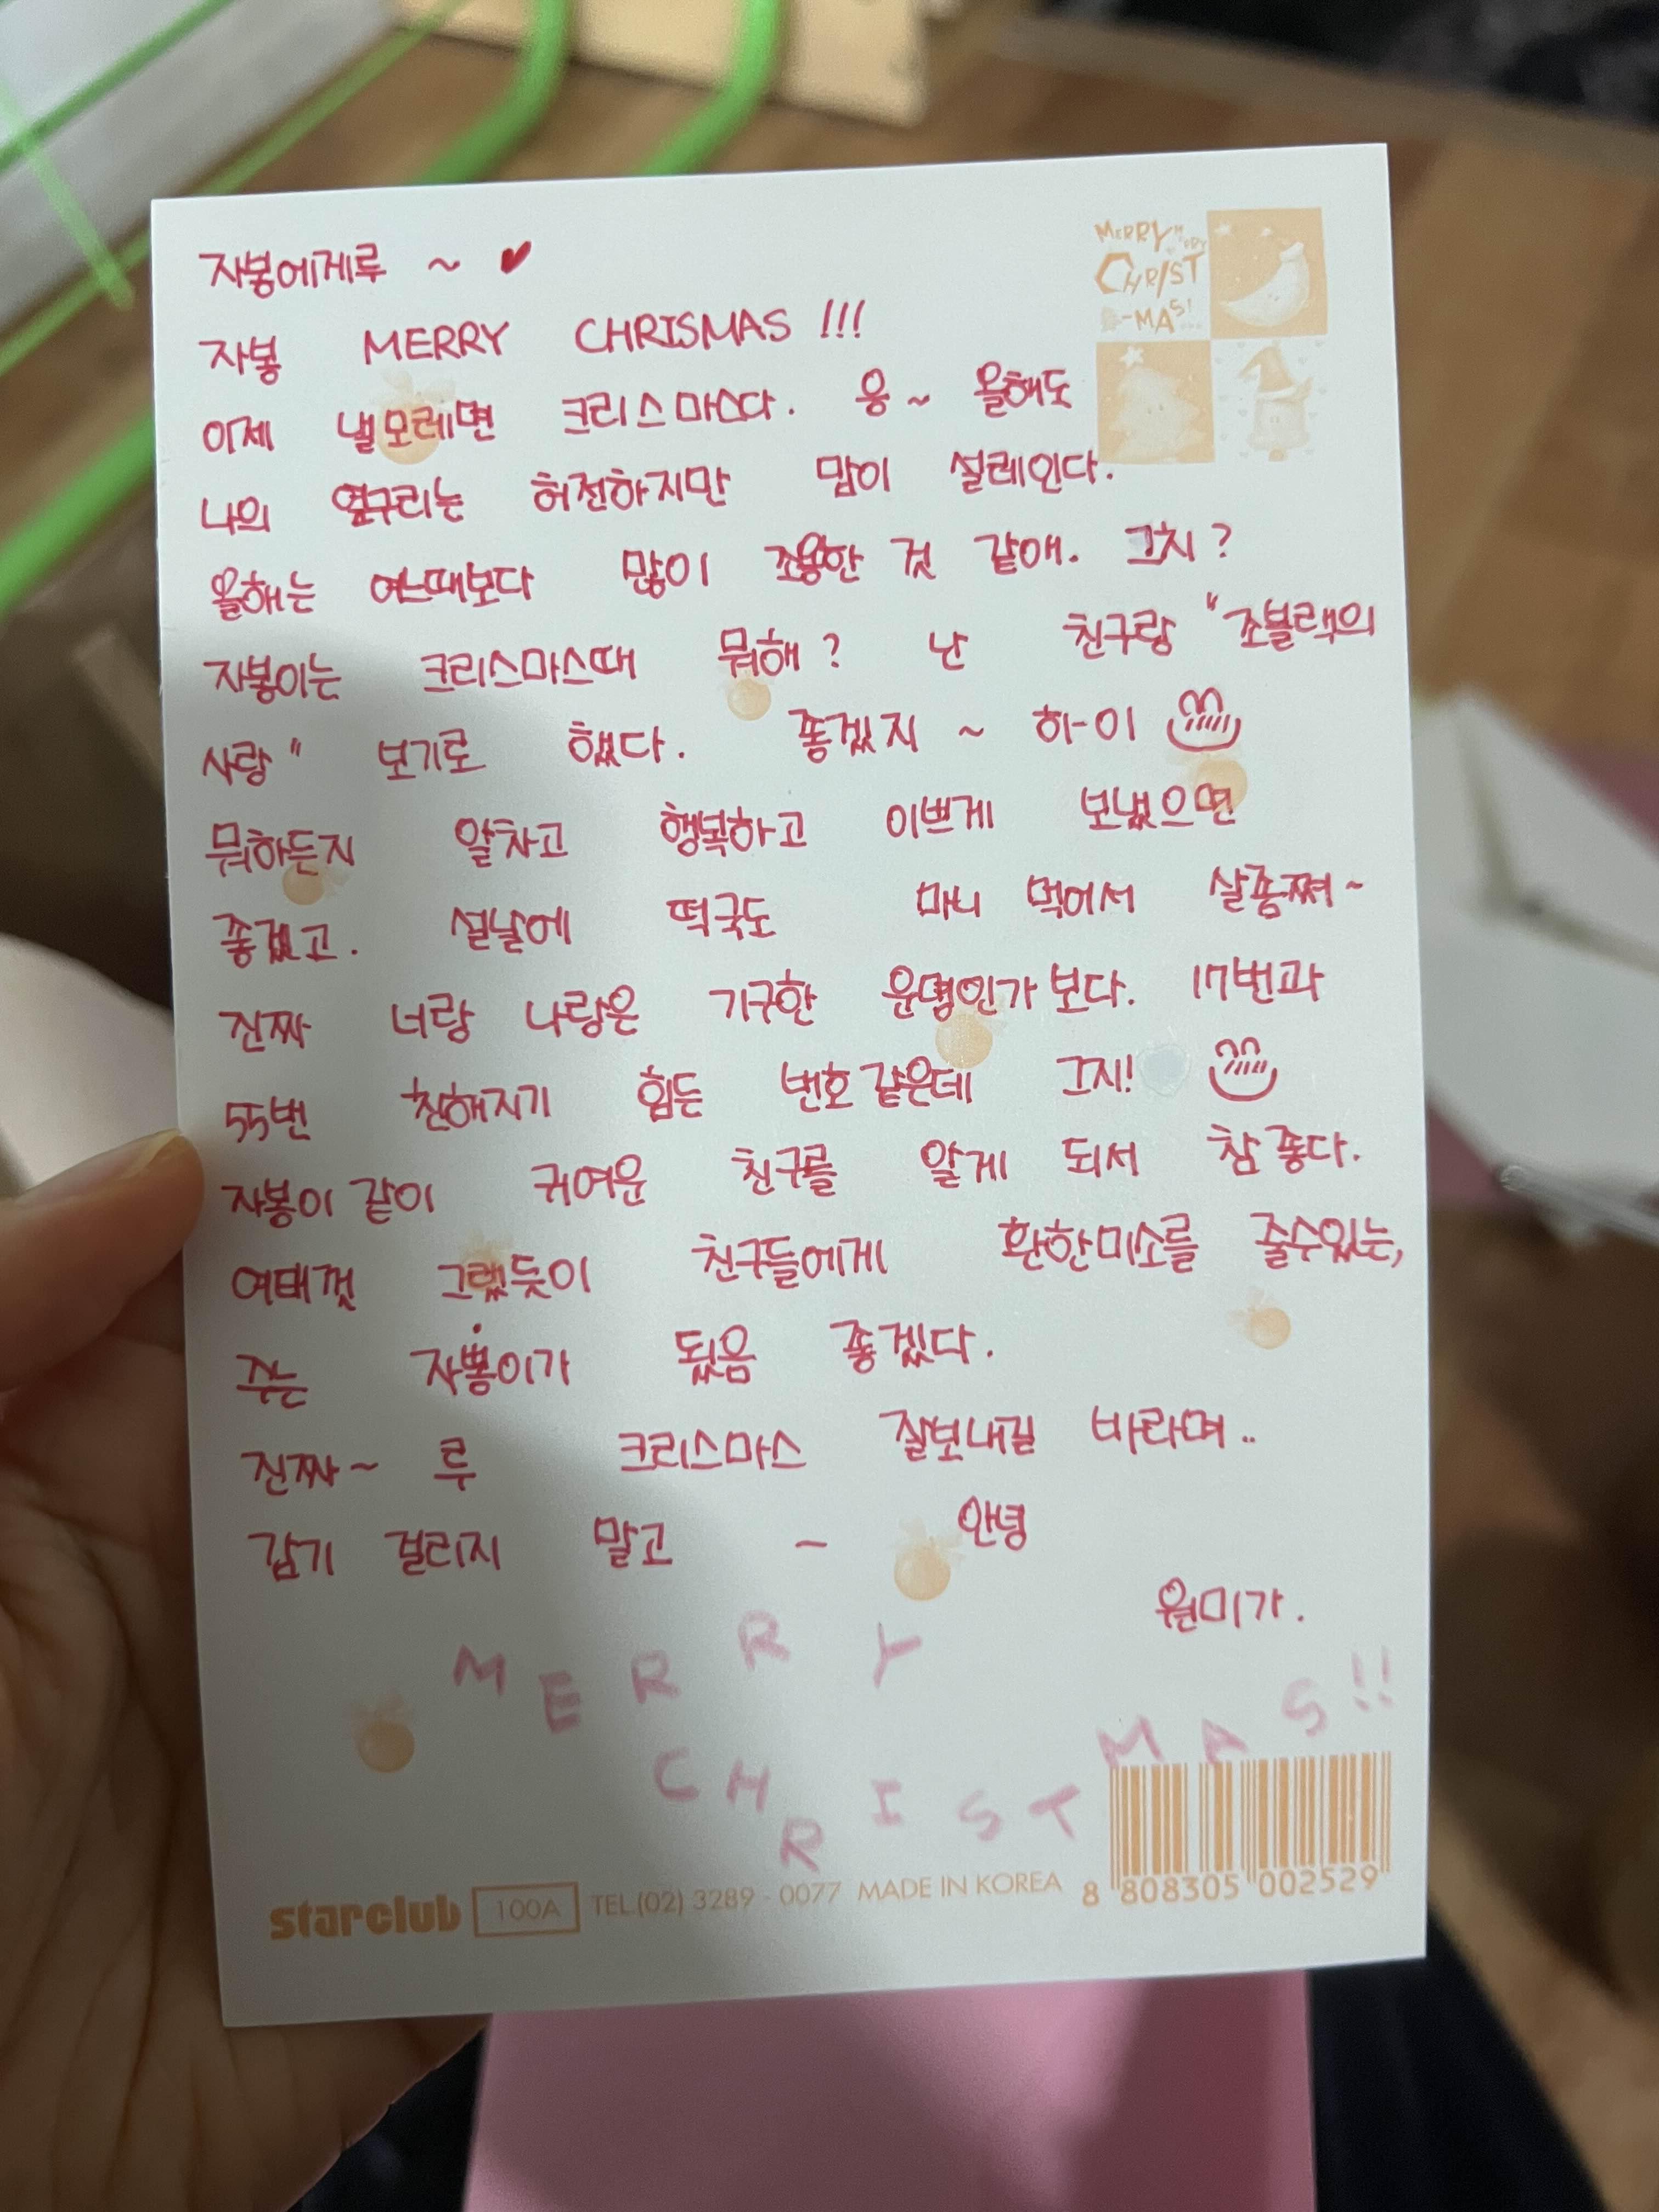 자봉에게루 ~ ♥
MERRY
CHRIST
-MAS!
자봉 MERRY CHRISMAS !!!
이제 낼모레면 크리스마스다. 웅~ 올해도
나의 옆구리는 허전하지만 맘이 설레인다.
올해는 여느때보다 많이 조용한 것 같애. 그치?
자봉이는 크리스마스때 뭐해? 난 친구랑 "조블랙의
사랑" 보기로 했다. 좋겠지 ~ 하-이
뭐하든지 알차고 행복하고 이쁘게 보냈으면
좋겠고. 설날에 떡국도 마니 먹어서 살좀쪄~
진짜 너랑 나랑은 기구한 운명인가 보다. 17번과
55번 친해지기 힘든 번호 같은데 그지!
자봉이 같이 귀여운 친구를 알게 되서 참 좋다.
여태껏 그랬듯이 친구들에게 환한미소를 줄수있는,
주는 자뽕이가 됬음 좋겠다.
진짜~ 루 크리스마스 잘보내길 바라며..
감기 걸리지 말고 ~ 안녕
원미가.
MERRY
CHRISTMAS!!
starclub 100A TEL.(02) 3289-0077 MADE IN KOREA 8 808305 002529